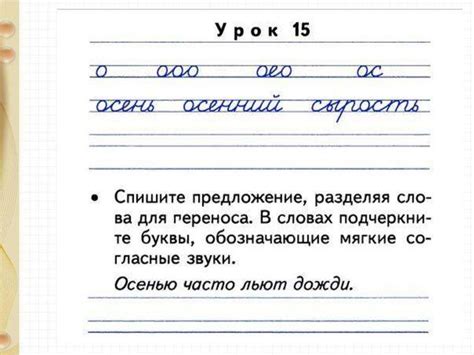 Урок 15
о ооо оео ос
осень осенний сырость
• Спишите предложение, разделяя сло-
ва для переноса. В словах подчеркни-
те буквы, обозначающие мягкие со-
гласные звуки.
Осенью часто льют дожди.